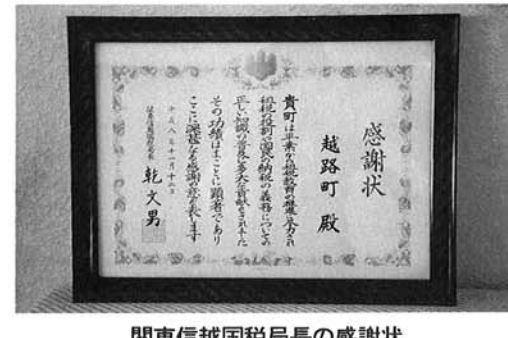 感謝状
越路町 殿
貴町は平素から租税教育の推進に尽力され
租税の役割や国民の納税の義務についての
正しい知識の普及に多大な貢献をされました
その功績はまことに顕著であり
ここに深甚なる感謝の意を表します
平成八年十一月十二日
関東信越国税局長 乾文男
関東信越国税局長の感謝状